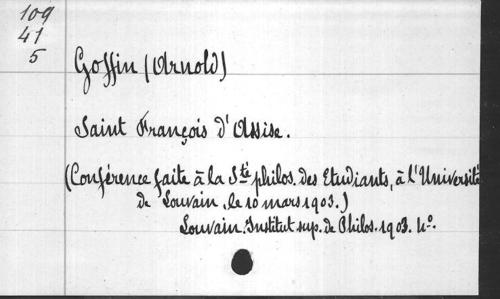 109
41
5
Goffin (Arnold)
Saint François d'Assise.
(Conférence faite à la Sté philos. des Etudiants, à l'Université
de Louvain, le 10 mars 1903.)
Louvain. Institut sup. de Philos. 1903. 4º.